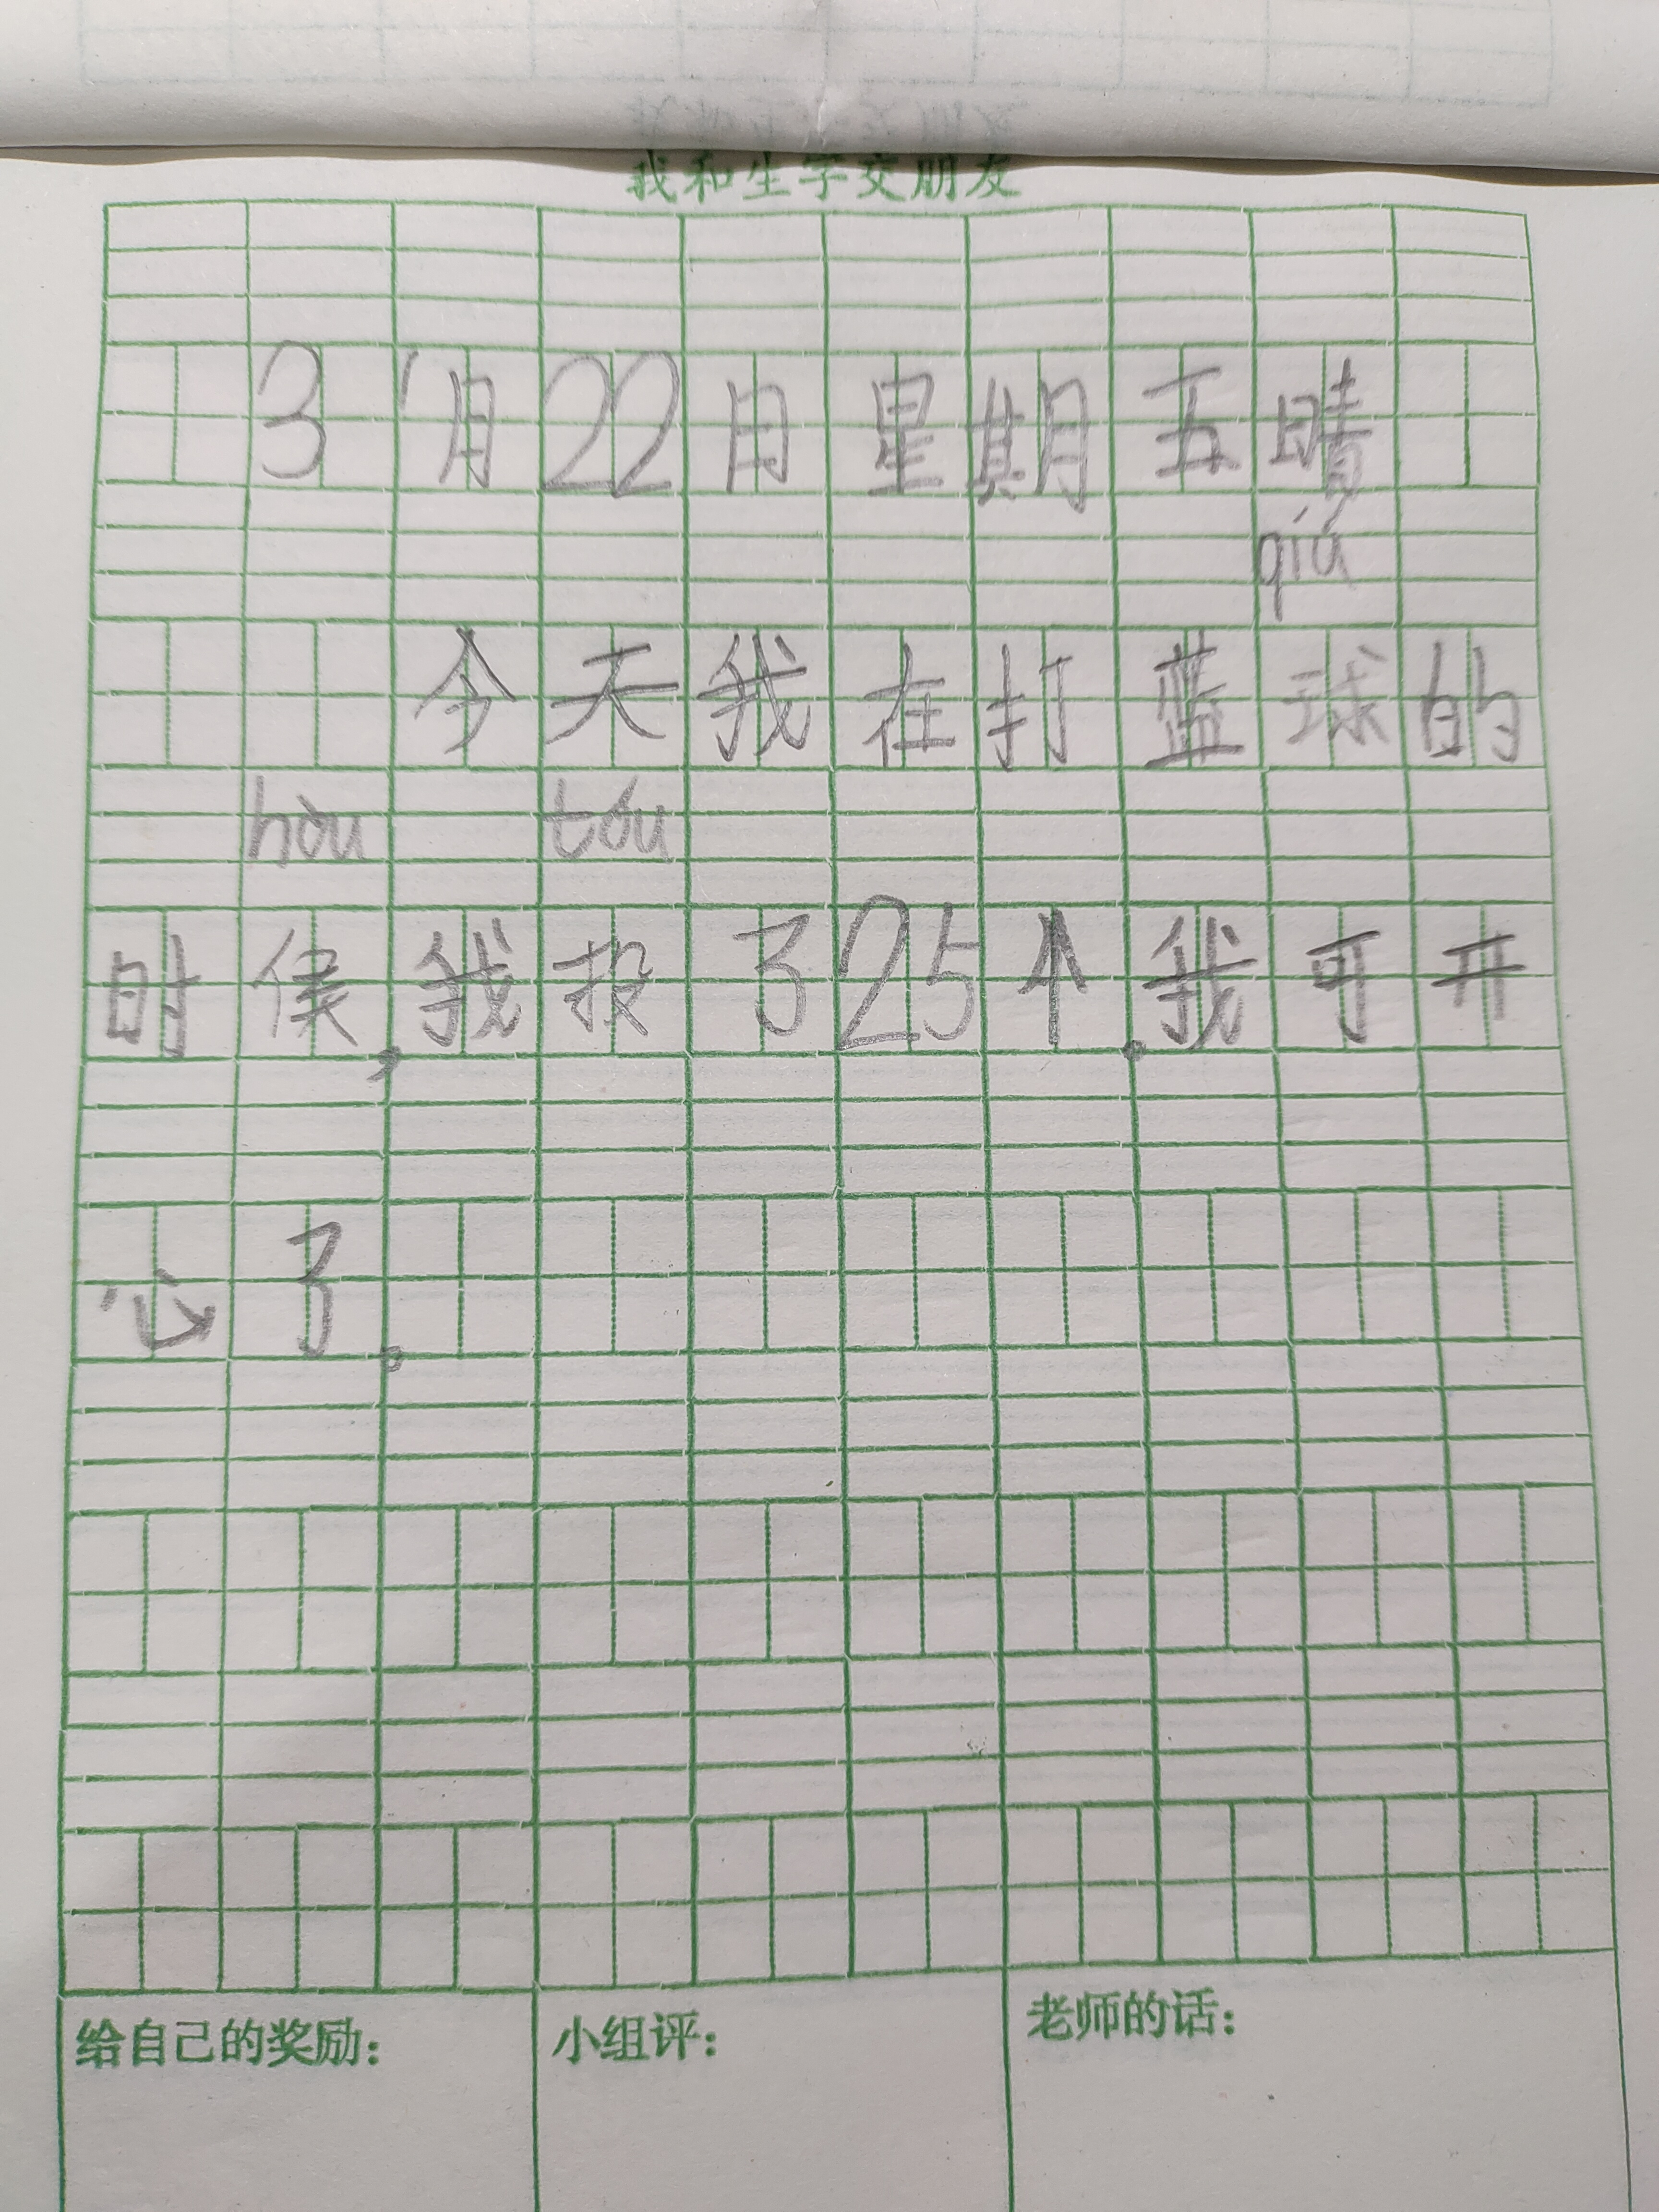 我和生字交朋友
3月22日星期五晴
qiú
今天我在打蓝球的
hòu tóu
时侯,我投了25个.我可开
心了。
给自己的奖励: 小组评: 老师的话: